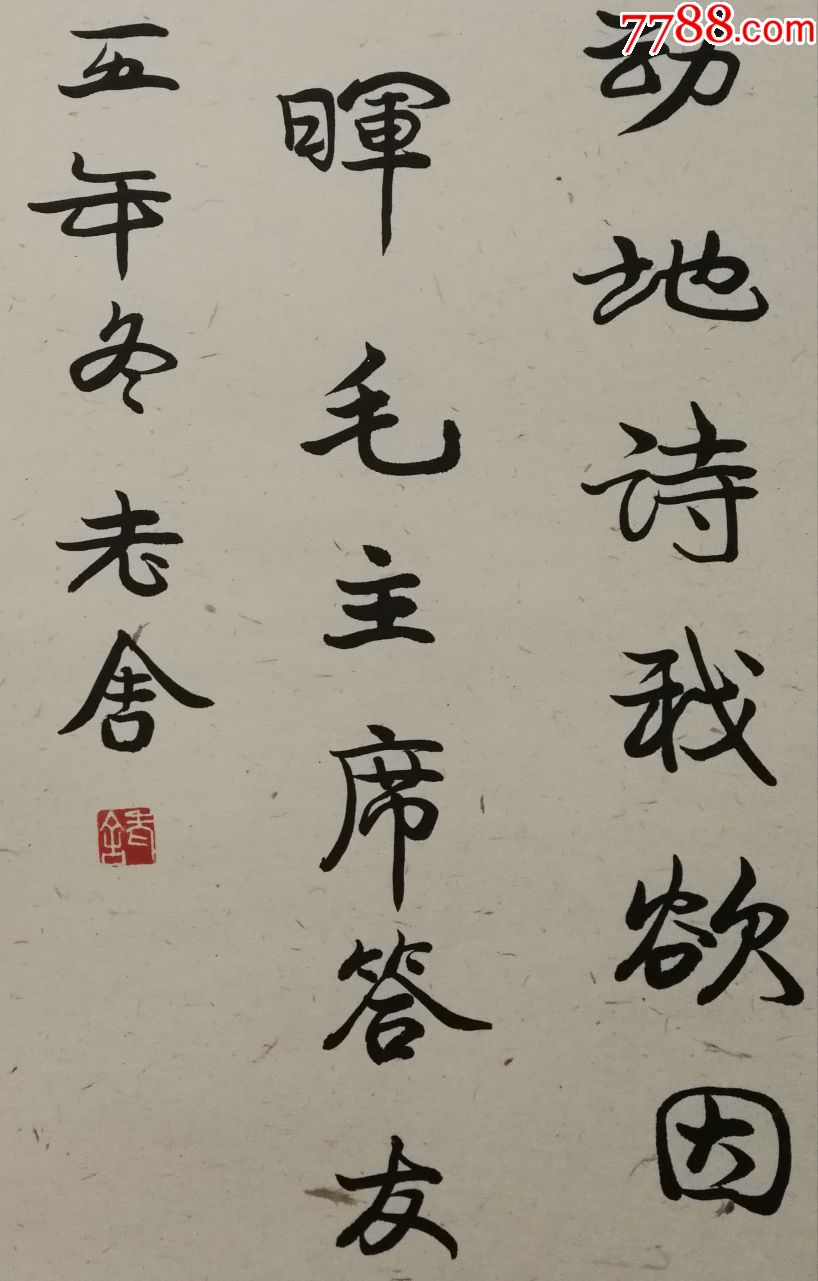 7788.com
动地诗我欲因
暉毛主席答友
五年冬老舍
老舍